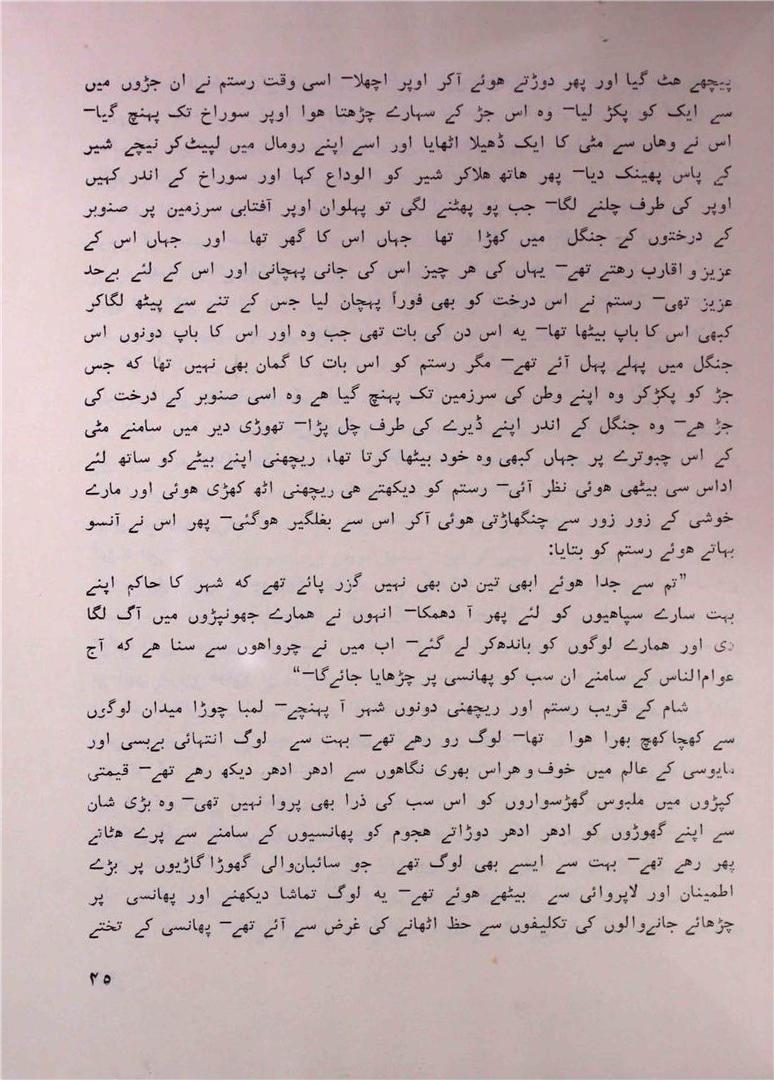 پیچھے ھٹ گیا اور پھر دوڑتے ھوئے آکر اوپر اچھلا— اسی وقت رستم نے ان جڑوں میں
سے ایک کو پکڑ لیا— وہ اس جڑ کے سہارے چڑھتا ھوا اوپر سوراخ تک پہنچ گیا—
اس نے وھاں سے مٹی کا ایک ڈھیلا اٹھایا اور اسے اپنے رومال میں لپیٹ کر نیچے شیر
کے پاس پھینک دیا— پھر ھاتھ ھلاکر شیر کو الوداع کہا اور سوراخ کے اندر کہیں
اوپر کی طرف چلنے لگا— جب پو پھٹنے لگی تو پہلوان اوپر آفتابی سرزمین پر صنوبر
کے درختوں کے جنگل میں کھڑا تھا جہاں اس کا گھر تھا اور جہاں اس کے
عزیز و اقارب رھتے تھے— یہاں کی ھر چیز اس کی جانی پہچانی اور اس کے لئے بےحد
عزیز تھی— رستم نے اس درخت کو بھی فوراً پہچان لیا جس کے تنے سے پیٹھ لگاکر
کبھی اس کا باپ بیٹھا تھا— یہ اس دن کی بات تھی جب وہ اور اس کا باپ دونوں اس
جنگل میں پہلے پہل آئے تھے— مگر رستم کو اس بات کا گمان بھی نہیں تھا کہ جس
جڑ کو پکڑکر وہ اپنے وطن کی سرزمین تک پہنچ گیا ھے وہ اسی صنوبر کے درخت کی
جڑ ھے— وہ جنگل کے اندر اپنے ڈیرے کی طرف چل پڑا— تھوڑی دیر میں سامنے مٹی
کے اس چبوترے پر جہاں کبھی وہ خود بیٹھا کرتا تھا، ریچھنی اپنے بیٹے کو ساتھ لئے
اداس سی بیٹھی ھوئی نظر آئی— رستم کو دیکھتے ھی ریچھنی اٹھ کھڑی ھوئی اور مارے
خوشی کے زور زور سے چنگھاڑتی ھوئی آکر اس سے بغلگیر ھوگئی— پھر اس نے آنسو
بہاتے ھوئے رستم کو بتایا:
”تم سے جدا ھوئے ابھی تین دن بھی نہیں گزر پائے تھے کہ شہر کا حاکم اپنے
بہت سارے سپاھیوں کو لئے پھر آ دھمکا— انہوں نے ھمارے جھونپڑوں میں آگ لگا
دی اور ھمارے لوگوں کو باندھ کر لے گئے— اب میں نے چرواھوں سے سنا ھے کہ آج
عوام‌الناس کے سامنے ان سب کو پھانسی پر چڑھایا جائےگا—“
شام کے قریب رستم اور ریچھنی دونوں شہر آ پہنچے— لمبا چوڑا میدان لوگوں
سے کھچا کھچ بھرا ھوا تھا— لوگ رو رھے تھے— بہت سے لوگ انتہائی بےبسی اور
مایوسی کے عالم میں خوف و ھراس بھری نگاھوں سے ادھر ادھر دیکھ رھے تھے— قیمتی
کپڑوں میں ملبوس گھڑسواروں کو اس سب کی ذرا بھی پروا نہیں تھی— وہ بڑی شان
سے اپنے گھوڑوں کو ادھر ادھر دوڑاتے ھجوم کو پھانسیوں کے سامنے سے پرے ھٹاتے
پھر رھے تھے— بہت سے ایسے بھی لوگ تھے جو سائبان‌والی گھوڑا گاڑیوں پر بڑے
اطمینان اور لاپروائی سے بیٹھے ھوئے تھے— یہ لوگ تماشا دیکھنے اور پھانسی پر
چڑھائے جانے‌والوں کی تکلیفوں سے حظ اٹھانے کی غرض سے آئے تھے— پھانسی کے تختے
۴۵